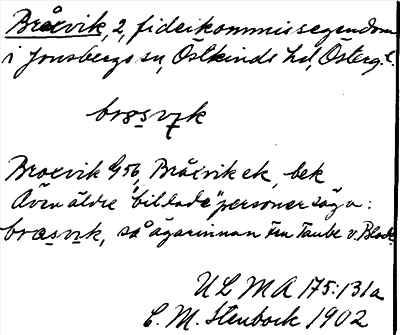 Bråxvik, 2, fideikommissegendom
i Jonsbergs sn, Östkinds hd, Österg. l.
Broxvik G56, Bråxvik ek, bek
Även äldre "bildade" personer säga:
så ägarinnan Frn Taube v. Block
ULMA 175:131a
C. M. Stenbock 1902